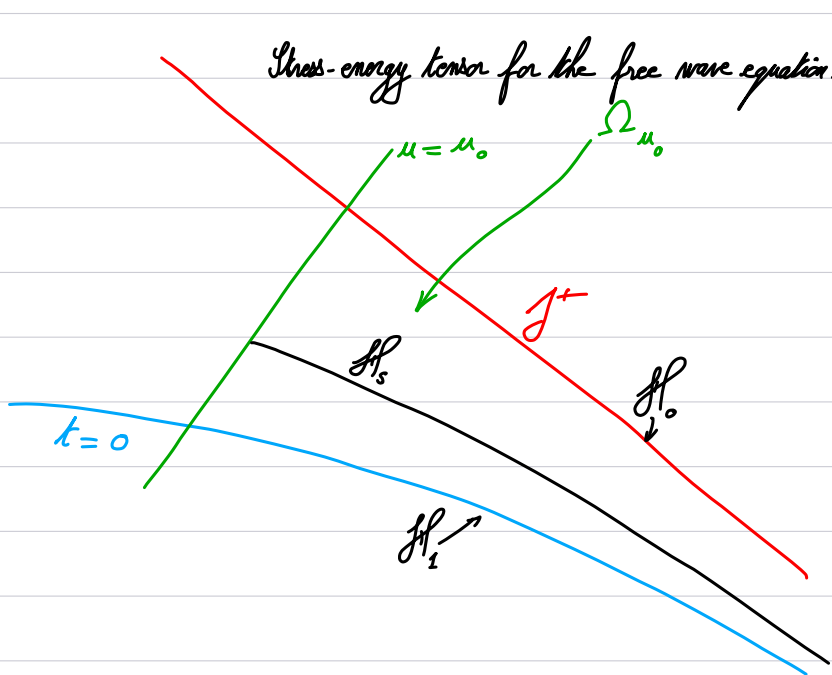 Stress-energy tensor for the free wave equation.
Ω_{u_0}
u = u_0
𝒥⁺
ℋ_s
ℋ_0
t = 0
ℋ_1